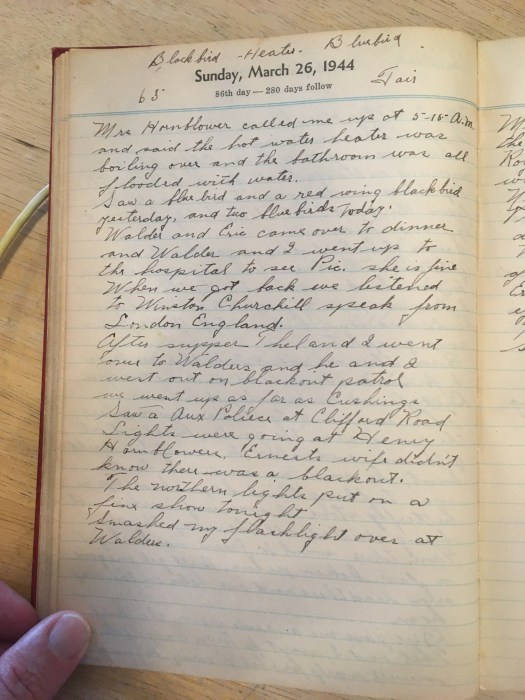 Blackbird - Heater. Bluebird.
Sunday, March 26, 1944
65
86th day — 280 days follow
Fair
Mrs Hornblower called me up at 5-15 A.m.
and said the hot water heater was
boiling over and the bathroom was all
flooded with water.
Saw a bluebird and a red wing blackbird
yesterday, and two bluebirds today.
Walder and Eric came over to dinner
and Walder and I went up to
the hospital to see Pic. she is fine
When we got back we listened
to Winston Churchill speak from
London England.
After supper Thel and I went
over to Walders and he and I
went out on blackout patrol
we went up as far as Cushings
Saw a Aux Police at Clifford Road
Lights were going at Henry
Hornblowers, Ernests wife didn't
know there was a blackout.
The northern lights put on a
fine show tonight
Smashed my flashlight over at
Walders.